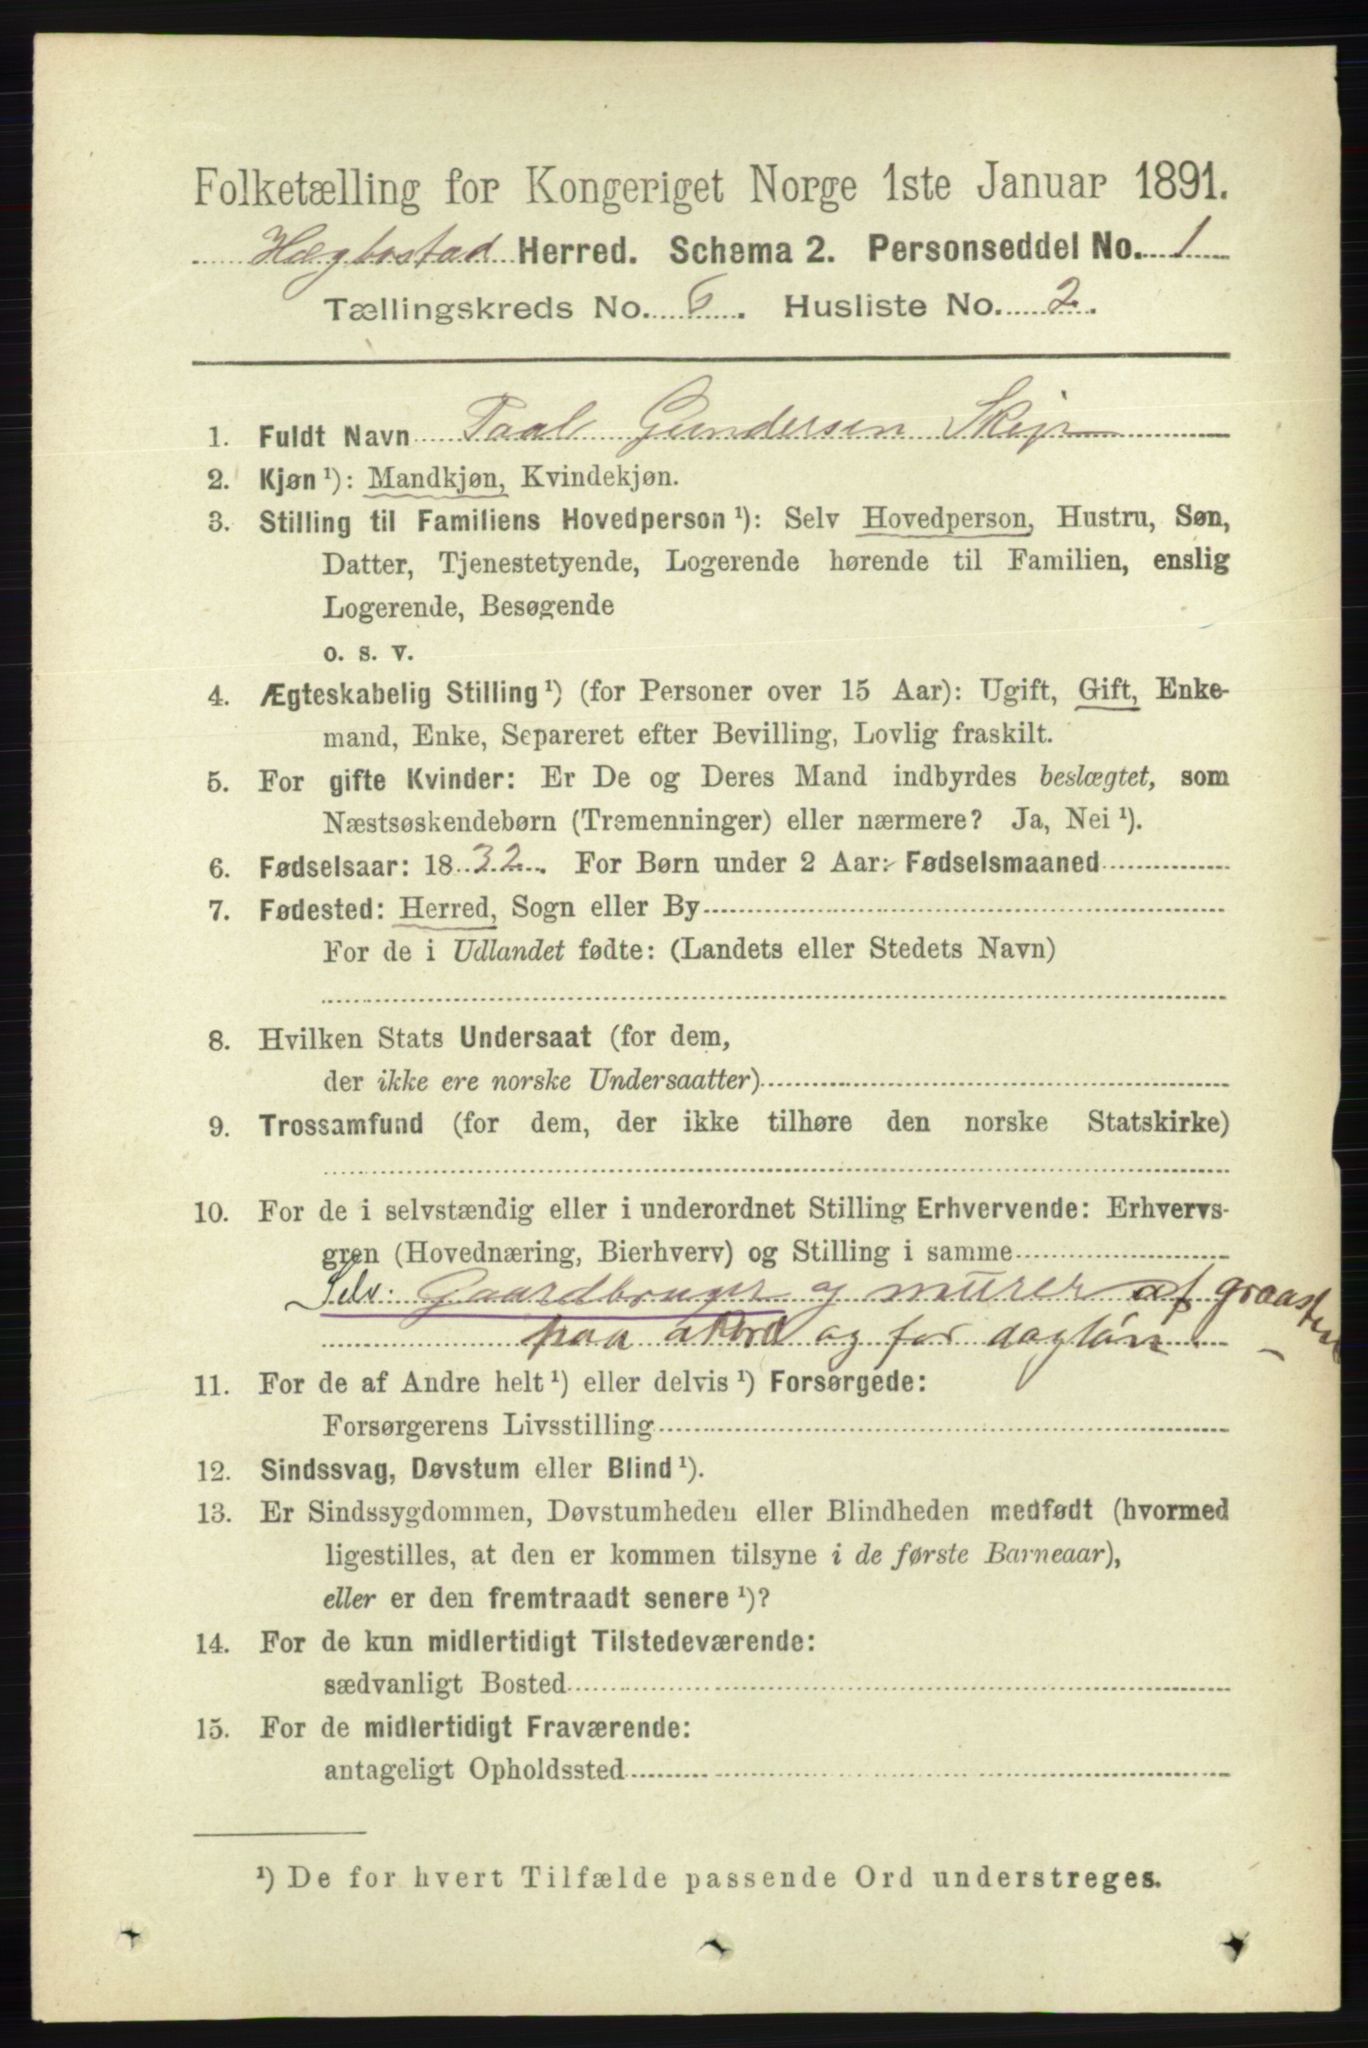 Folketælling for Kongeriget Norge 1ste Januar 1891.
Hægbostad Herred. Schema 2. Personseddel No. 1
Tællingskreds No. 6. Husliste No. 2.
1. Fuldt Navn Paal Gundersen Skeje
2. Kjøn ¹): Mandkjøn, Kvindekjøn.
3. Stilling til Familiens Hovedperson ¹): Selv Hovedperson, Hustru, Søn,
Datter, Tjenestetyende, Logerende hørende til Familien, enslig
Logerende, Besøgende
o. s. v.
4. Ægteskabelig Stilling ¹) (for Personer over 15 Aar): Ugift, Gift, Enke-
mand, Enke, Separeret efter Bevilling, Lovlig fraskilt.
5. For gifte Kvinder: Er De og Deres Mand indbyrdes beslægtet, som
Næstsøskendebørn (Tremenninger) eller nærmere? Ja, Nei ¹).
6. Fødselsaar: 1832. For Børn under 2 Aar: Fødselsmaaned
7. Fødested: Herred, Sogn eller By
For de i Udlandet fødte: (Landets eller Stedets Navn)
8. Hvilken Stats Undersaat (for dem,
der ikke ere norske Undersaatter)
9. Trossamfund (for dem, der ikke tilhøre den norske Statskirke)
10. For de i selvstændig eller i underordnet Stilling Erhvervende: Erhvervs-
gren (Hovednæring, Bierhverv) og Stilling i samme
Selv. Gaardbruger og murer af graasten
paa akord og for dagløn.
11. For de af Andre helt ¹) eller delvis ¹) Forsørgede:
Forsørgerens Livsstilling
12. Sindssvag, Døvstum eller Blind ¹).
13. Er Sindssygdommen, Døvstumheden eller Blindheden medfødt (hvormed
ligestilles, at den er kommen tilsyne i de første Barneaar),
eller er den fremtraadt senere ¹)?
14. For de kun midlertidigt Tilstedeværende:
sædvanligt Bosted
15. For de midlertidigt Fraværende:
antageligt Opholdssted
¹) De for hvert Tilfælde passende Ord understreges.